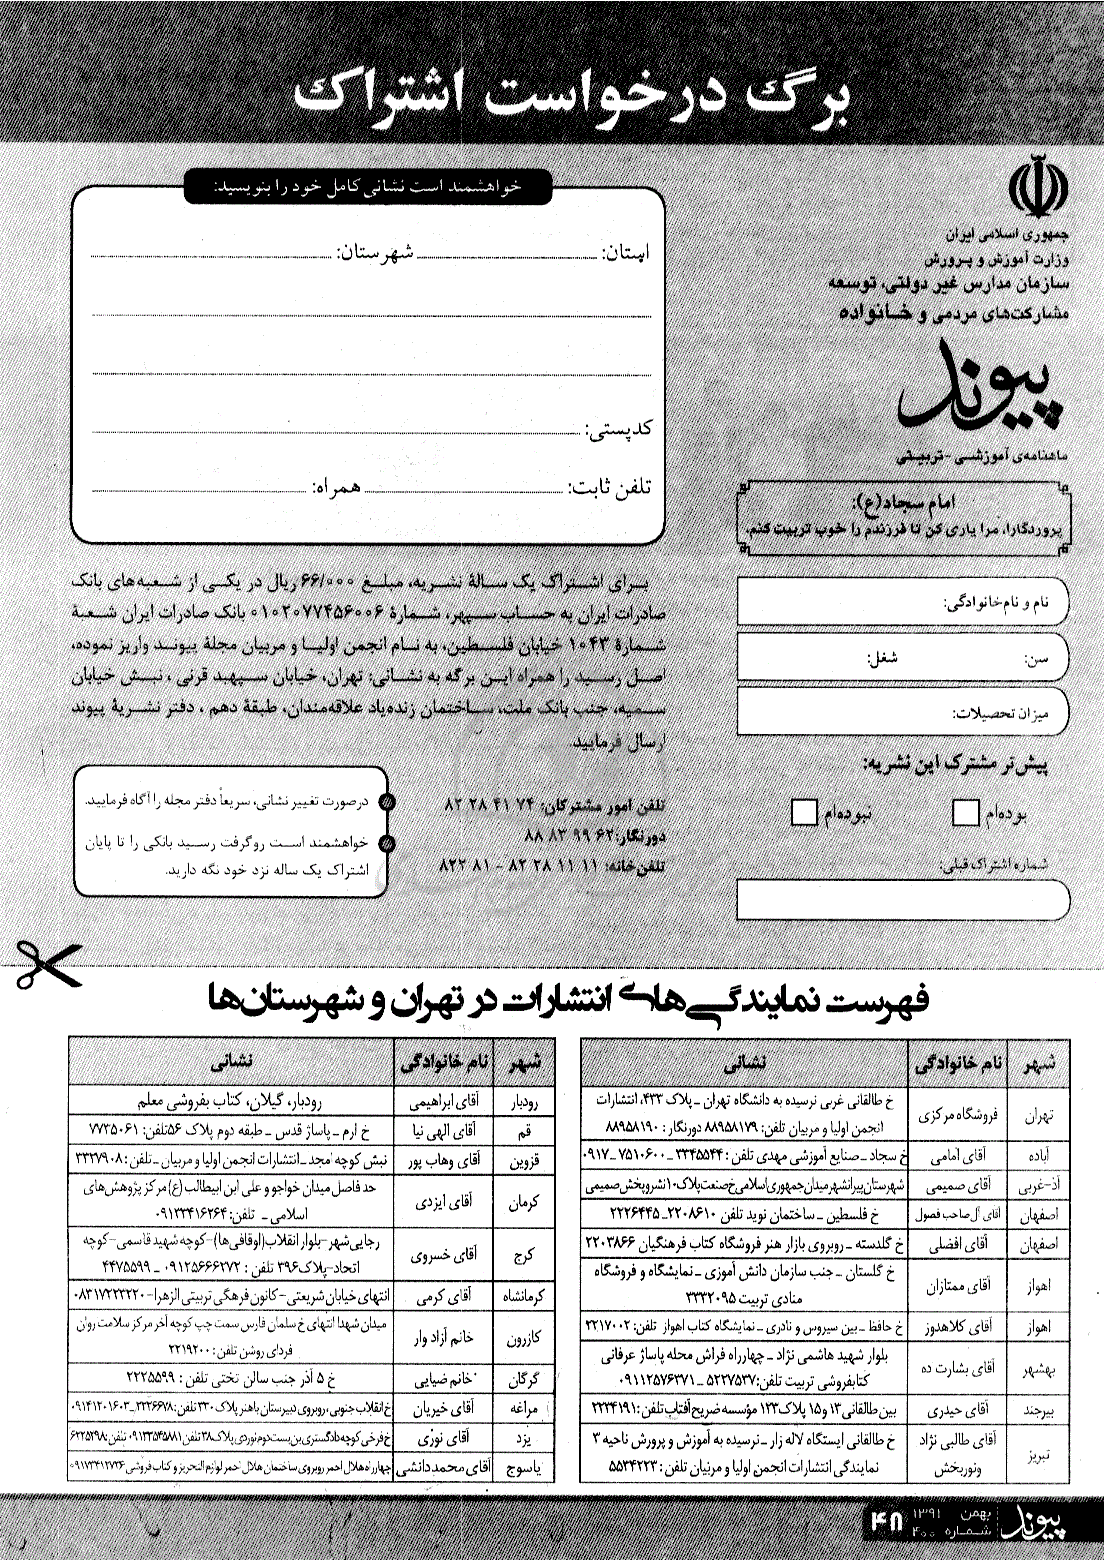 برگ درخواست اشتراک
جمهوری اسلامی ایران
وزارت آموزش و پرورش
سازمان مدارس غیر دولتی، توسعه
مشارکت‌های مردمی و خانواده
پیوند
ماهنامه‌ی آموزشی - تربیتی
امام سجاد(ع):
پروردگارا، مرا یاری کن تا فرزندم را خوب تربیت کنم.
نام و نام‌خانوادگی:
سن: شغل:
میزان تحصیلات:
پیش‌تر مشترک این نشریه:
بوده‌ام نبوده‌ام
شماره اشتراک قبلی:
خواهشمند است نشانی کامل خود را بنویسید:
استان: شهرستان:
کدپستی:
تلفن ثابت: همراه:
برای اشتراک یک سالهٔ نشریه، مبلغ ۶۶/۰۰۰ ریال در یکی از شعبه‌های بانک
صادرات ایران به حساب سپهر، شمارهٔ ۰۱۰۲۰۷۷۴۵۶۰۰۶ بانک صادرات ایران شعبهٔ
شمارهٔ ۱۰۴۳ خیابان فلسطین، به نام انجمن اولیا و مربیان مجلهٔ پیوند واریز نموده،
اصل رسید را همراه این برگه به نشانی: تهران، خیابان سپهبد قرنی ، نبش خیابان
سمیه، جنب بانک ملت، ساختمان زنده‌یاد علاقه‌مندان، طبقهٔ دهم ، دفتر نشریهٔ پیوند
ارسال فرمایید.
تلفن امور مشترکان: ۷۴ ۴۱ ۲۸ ۸۲
دورنگار: ۶۲ ۹۹ ۸۳ ۸۸
تلفن‌خانه: ۱۱ ۱۱ ۲۸ ۸۲ - ۸۱ ۸۲۲
درصورت تغییر نشانی، سریعاً دفتر مجله را آگاه فرمایید.
خواهشمند است روگرفت رسید بانکی را تا پایان
اشتراک یک ساله نزد خود نگه دارید.
فهرست نمایندگی‌های انتشارات در تهران و شهرستان‌ها
شهر نام خانوادگی نشانی
تهران فروشگاه مرکزی خ طالقانی غربی نرسیده به دانشگاه تهران ـ پلاک ۴۳۳، انتشارات
انجمن اولیا و مربیان تلفن: ۸۸۹۵۸۱۷۹ دورنگار : ۸۸۹۵۸۱۹۰
آباده آقای امامی خ سجاد ـ صنایع آموزشی مهدی تلفن : ۳۳۴۵۵۴۴ ـ ۷۵۱۰۶۰۰ ـ ۰۹۱۷
آذ-غربی آقای صمیمی شهرستان پیرانشهر میدان جمهوری اسلامی خ صنعت پلاک۱۰ نشر و پخش صمیمی
اصفهان آقای آل صاحب فصول خ فلسطین ـ ساختمان نوید تلفن ۲۲۰۸۶۱۰ ـ ۲۲۲۶۴۴۵
اصفهان آقای افضلی خ گلدسته ـ روبروی بازار هنر فروشگاه کتاب فرهنگیان ۲۲۰۳۸۶۶
اهواز آقای ممتازان خ گلستان ـ جنب سازمان دانش آموزی ـ نمایشگاه و فروشگاه
منادی تربیت ۳۳۳۲۰۹۵
اهواز آقای کلاهدوز خ حافظ ـ بین سیروس و نادری ـ نمایشگاه کتاب اهواز تلفن: ۲۲۱۷۰۰۲
بهشهر آقای بشارت ده بلوار شهید هاشمی نژاد ـ چهارراه فراش محله پاساژ عرفانی
کتابفروشی تربیت تلفن: ۵۲۲۷۵۳۷ ـ ۰۹۱۱۲۵۷۶۳۷۱
بیرجند آقای حیدری بین طالقانی ۱۳ و ۱۵ پلاک ۱۲۳ مؤسسه ضریح آفتاب تلفن: ۲۲۳۴۱۹۱
تبریز آقای طالبی نژاد خ طالقانی ایستگاه لاله زار ـ نرسیده به آموزش و پرورش ناحیه ۳
ونوربخش نمایندگی انتشارات انجمن اولیا و مربیان تلفن : ۵۵۳۴۲۲۳
شهر نام خانوادگی نشانی
رودبار آقای ابراهیمی رودبار، گیلان، کتاب بفروشی معلم
قم آقای الهی نیا خ ارم ـ پاساژ قدس ـ طبقه دوم پلاک ۵۶ تلفن: ۷۷۳۵۰۶۱
قزوین آقای وهاب پور نبش کوچه امجد ـ انتشارات انجمن اولیا و مربیان ـ تلفن: ۳۳۲۷۹۰۸
کرمان آقای ایزدی حد فاصل میدان خواجو و علی ابن ابیطالب (ع) مرکز پژوهش‌های
اسلامی ـ تلفن: ۰۹۱۳۳۴۱۶۲۶۴
کرج آقای خسروی رجایی شهر- بلوار انقلاب (اوقافی‌ها)- کوچه شهید قاسمی- کوچه
اتحاد- پلاک ۳۹۶ تلفن : ۰۹۱۲۵۶۶۶۲۷۲ ـ ۴۴۷۵۵۹۹
کرمانشاه آقای کرمی انتهای خیابان شریعتی- کانون فرهنگی تربیتی الزهرا- ۰۸۳۱۷۲۲۳۲۲۰
کازرون خانم آزاد وار میدان شهدا انتهای خ سلمان فارس سمت چپ کوچه آخر مرکز سلامت روان
فردای روشن تلفن : ۲۲۱۹۲۰۰
گرگان خانم ضیایی خ ۵ آذر جنب سالن تختی تلفن : ۲۲۲۵۵۹۹
مراغه آقای خیریان خ انقلاب جنوبی، روبروی دبیرستان باهنر پلاک ۳۳۰ تلفن: ۲۲۲۶۶۷۸ ـ ۰۹۱۴۱۲۰۱۶۰۳
یزد آقای نوری خ فرخی کوچه دادگستری بن بست دوم نوردی پلاک ۳۸ تلفن ۰۹۱۳۳۵۴۵۸۸۱ تلفن: ۶۲۲۵۲۹۸
یاسوج آقای محمددانشی چهارراه هلال احمر روبروی ساختمان هلال احمر لوازم التحریر و کتاب فروشی ۰۹۱۷۳۴۱۲۷۲۶
پیوند بهمن ۱۳۹۱ شماره ۴۰۰ ۴۸